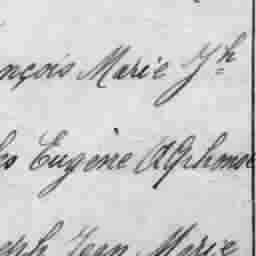 nçois Marie Jh
es Eugène Alphonse
seph Jean Marie